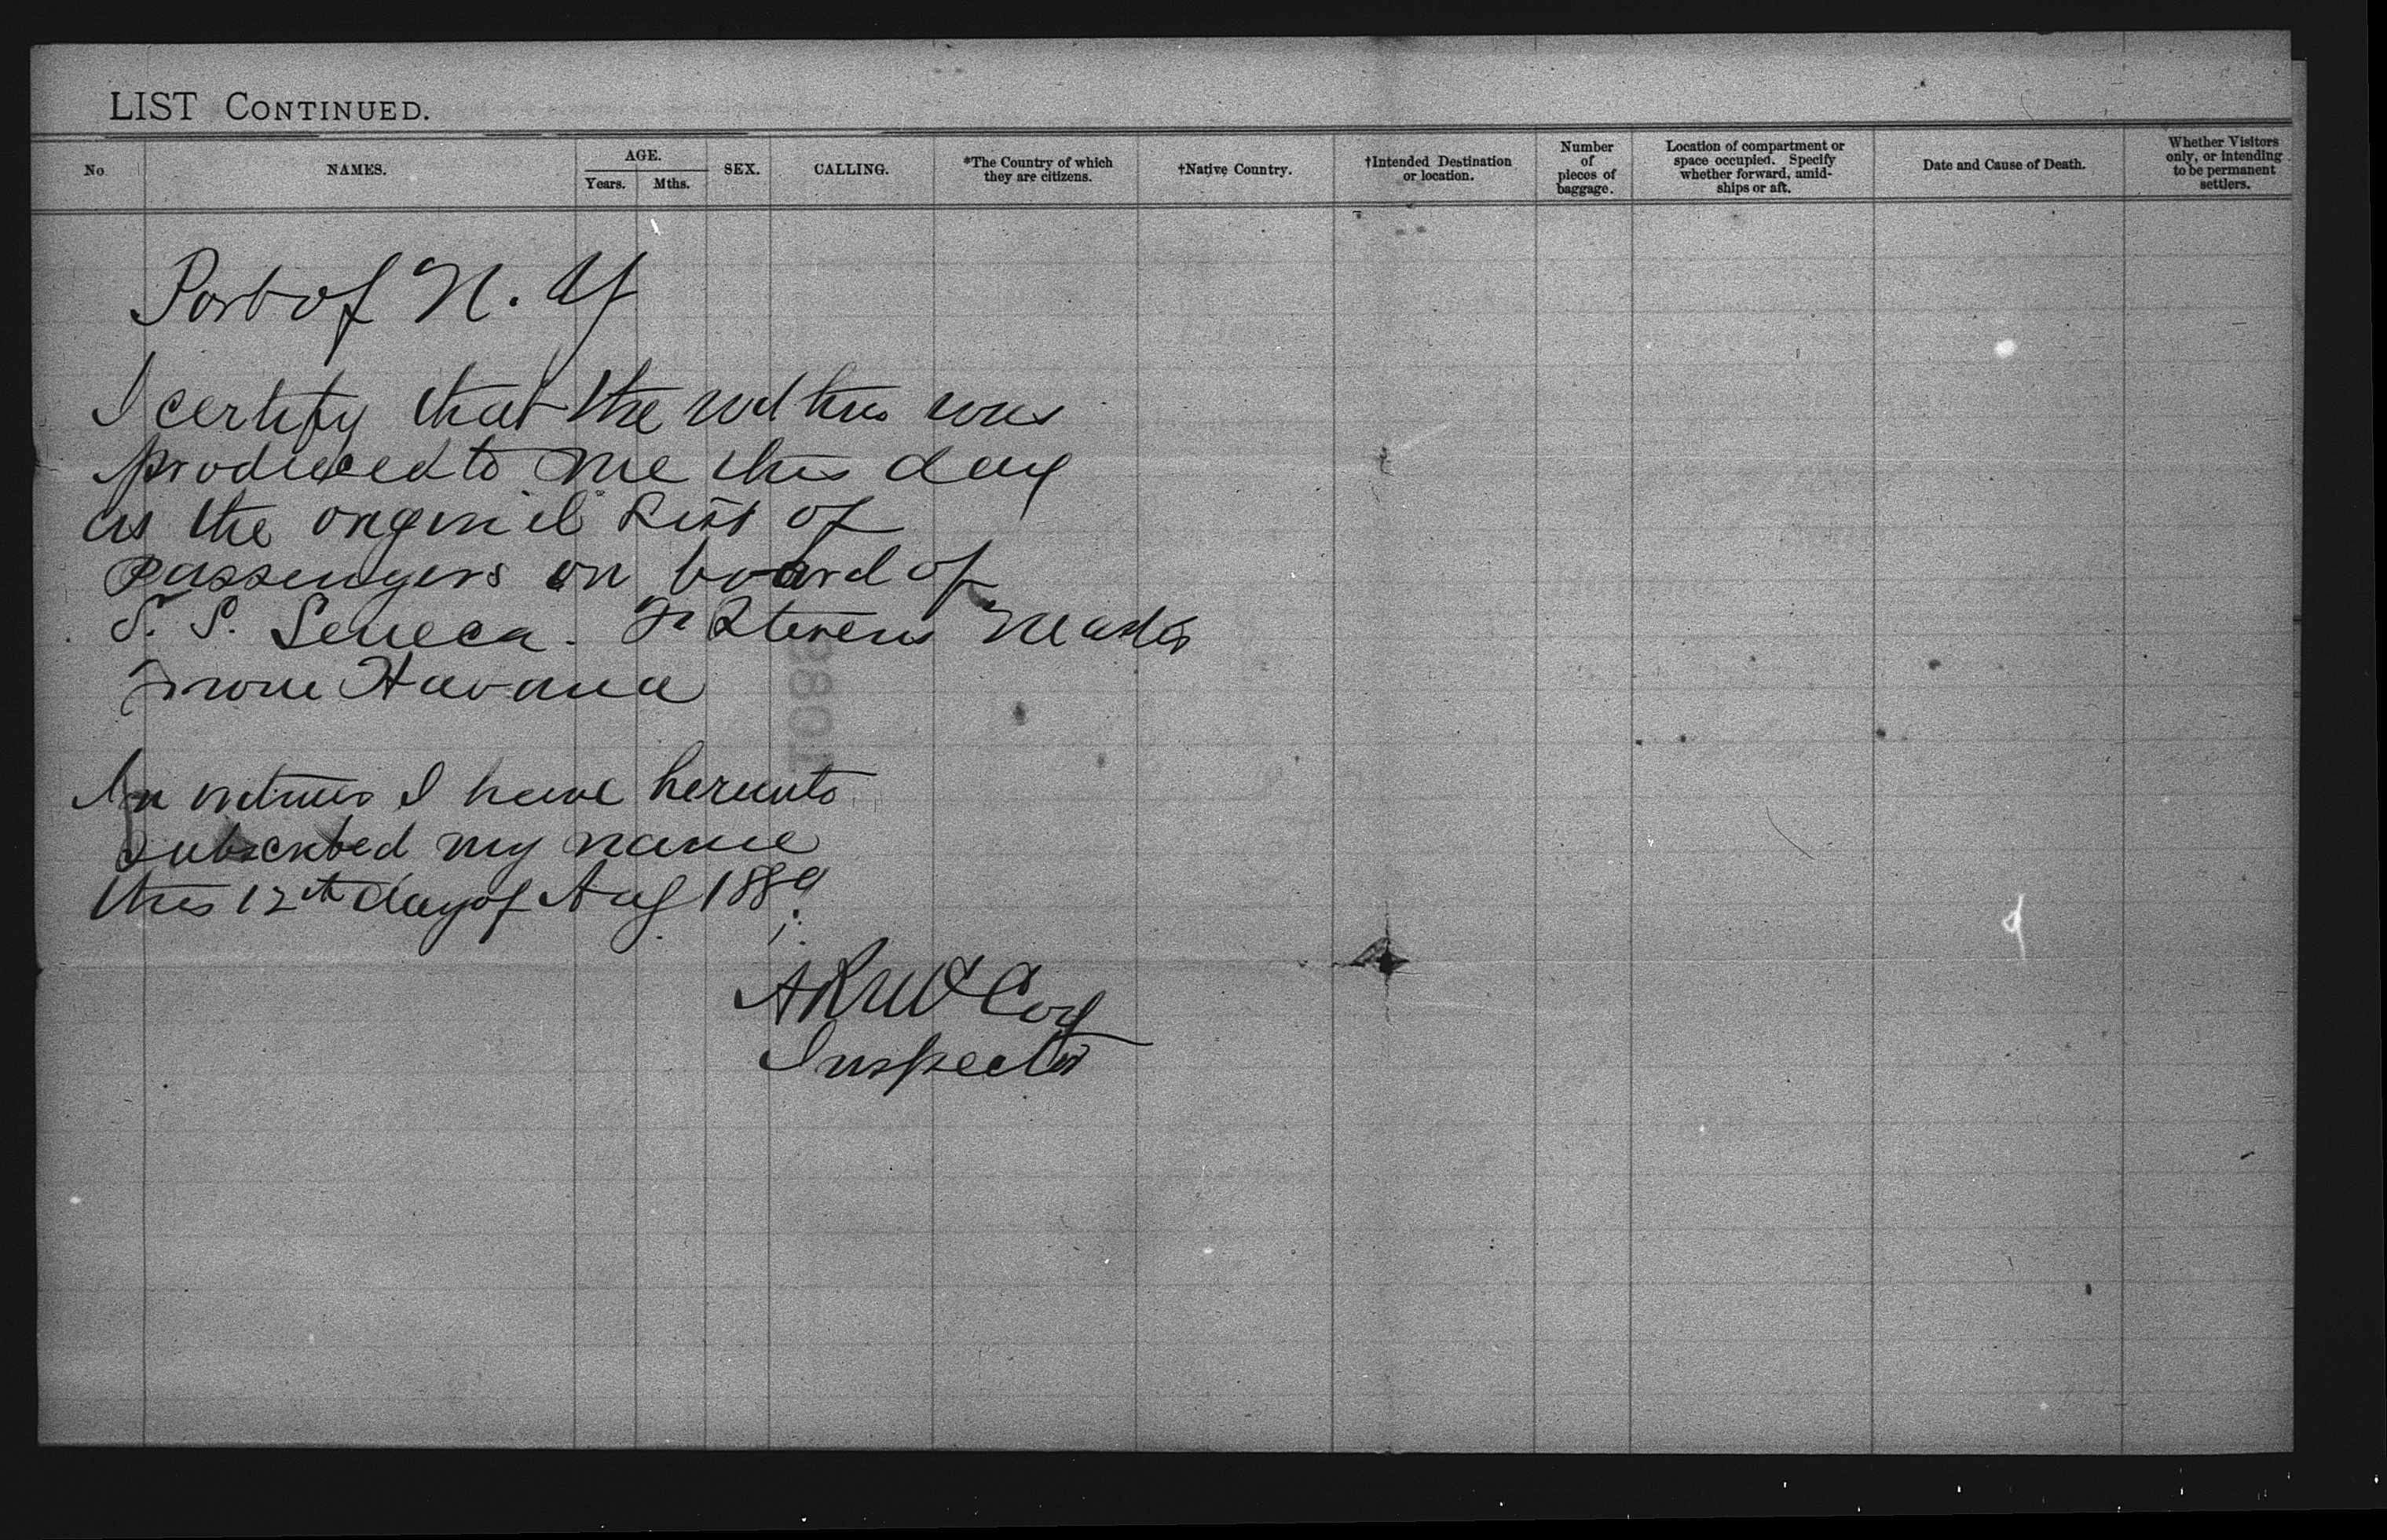 LIST CONTINUED.
No
NAMES.
AGE.
Years.
Mths.
SEX.
CALLING.
*The Country of which
they are citizens.
†Native Country.
†Intended Destination
or location.
Number
of
pieces of
baggage.
Location of compartment or
space occupied. Specify
whether forward, amid-
ships or aft.
Date and Cause of Death.
Whether Visitors
only, or intending
to be permanent
settlers.
Port of N. Y
I certify that the within was
produced to me this day
as the original List of
passengers on board of
S. S. Seneca. Stevens Master
from Havana
In witness I have hereunto
subscribed my name
this 12th day of Aug 1889
A R McCoy
Inspector